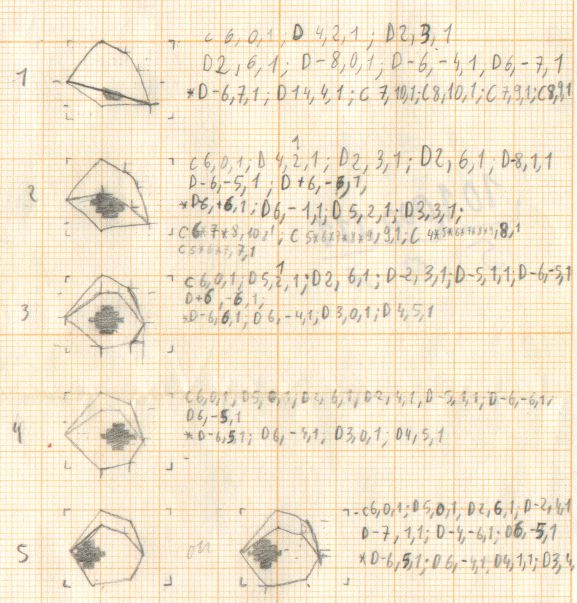 1
C 6,0,1; D 4,2,1; D2,3,1
D2,6,1; D-8,0,1; D-6,-4,1, D6,-7,1
*D-6,7,1; D14,4,1; C 7,10,1; C8,10,1; C7,9,1; C8,9,1
2
C6,0,1; D 4,2,1; D2,3,1; D2,6,1; D-8,1,1
D-6,-5,1; D+6,-8,1,
*D6,+6,1; D6,-1,1; D5,2,1; D3,3,1;
3
C6,0,1; D5,2,1; D2,6,1; D-2,3,1; D-5,1,1; D-6,-5,1
D+6,-6,1;
*D-6,6,1; D6,-4,1; D3,0,1; D4,5,1
4
C6,0,1; D5,0,1; D2,6,1; D-2,4,1, D-5,1,1; D-6,-6,1,
D6,-5,1
*D-6,5,1; D6,-4,1, D3,0,1; D4,5,1
5
ou
C6,0,1; D5,0,1, D2,6,1, D-2,4,1
D-7,1,1; D-4,-6,1; D6,-5,1
*D-6,5,1; D6,-4,1, D4,1,1; D3,4,